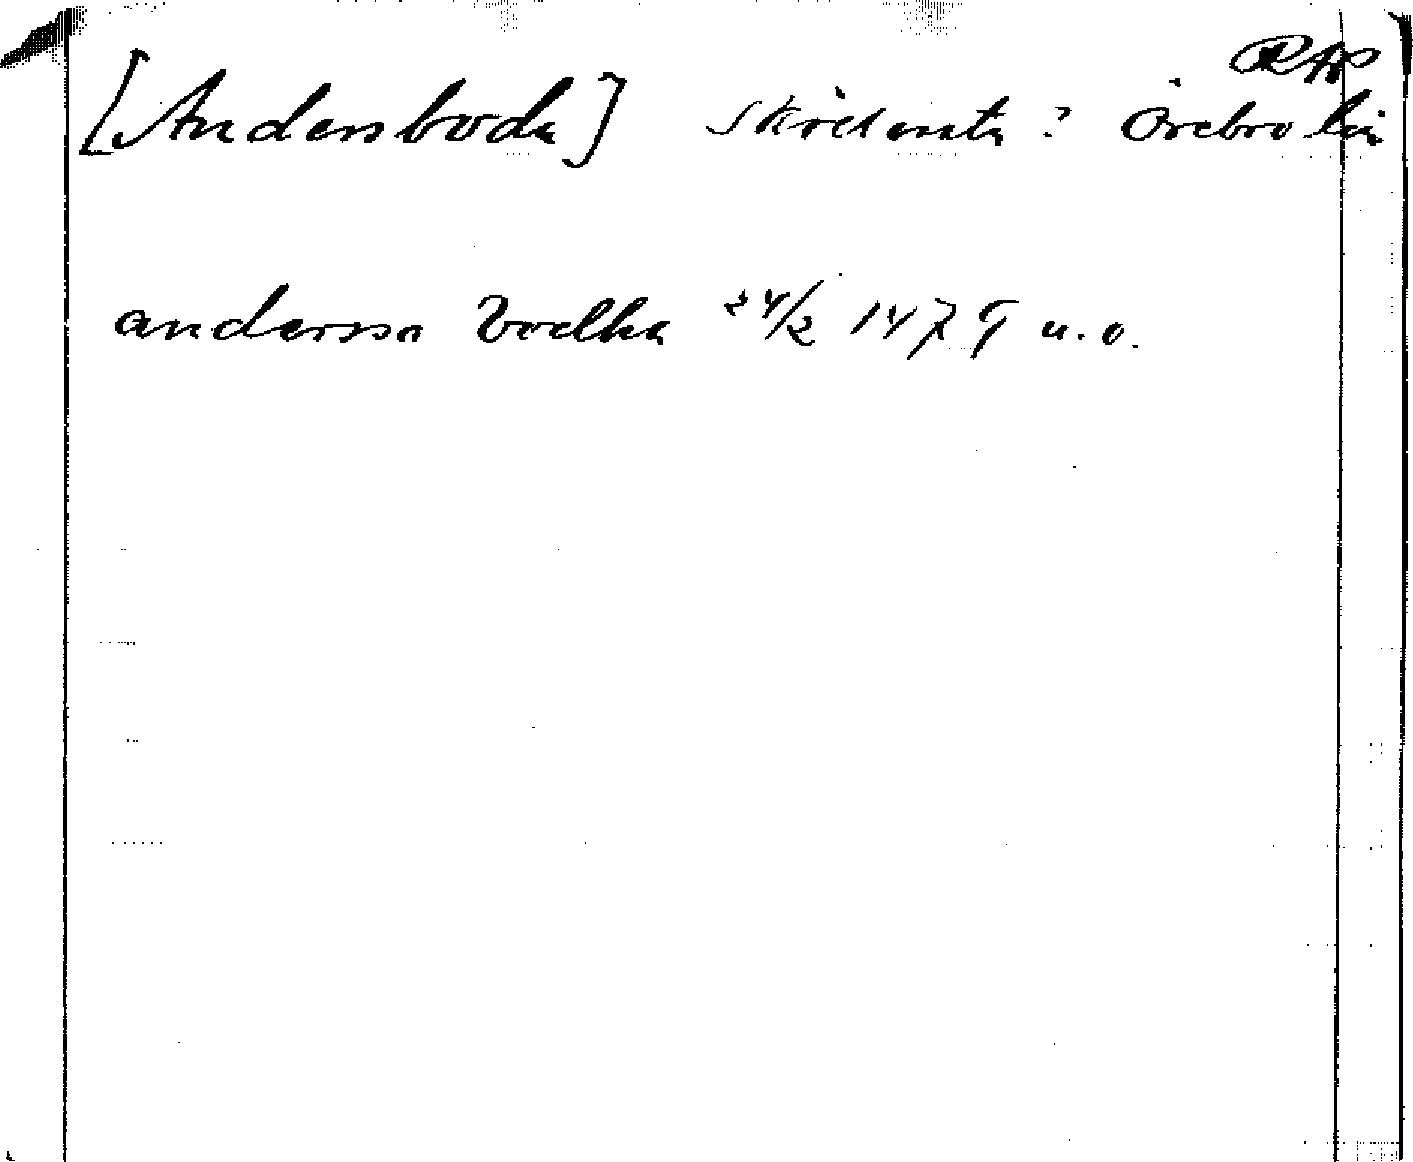 RAP
[Andersboda] Skörlersta? Örebro län
anderssa bodha 24/2 1479 u.o.